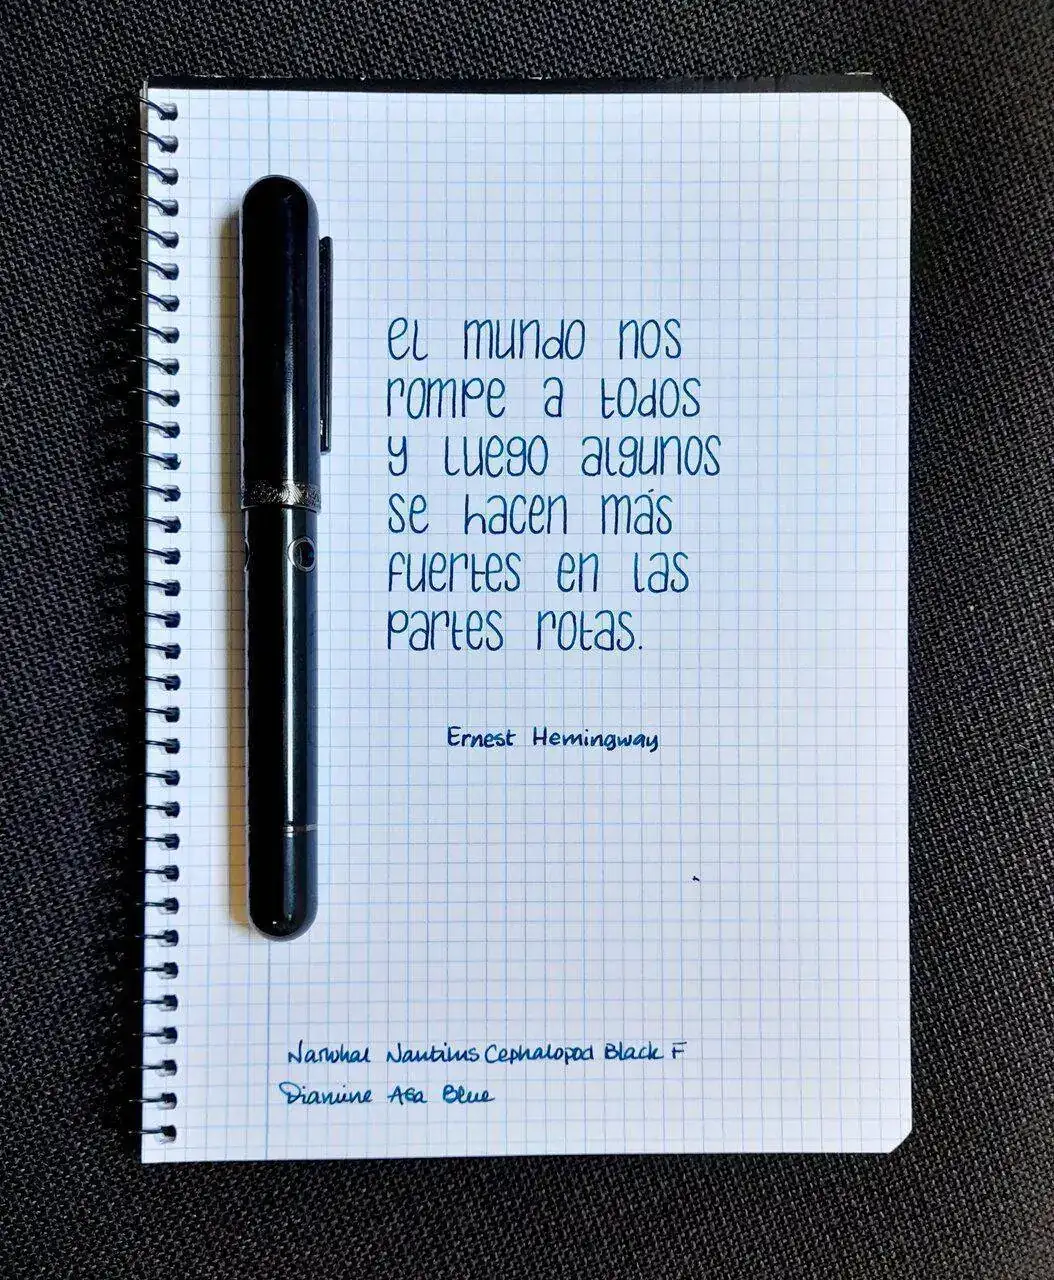 el mundo nos
rompe a todos
y luego algunos
se hacen más
fuertes en las
partes rotas.
Ernest Hemingway
Narwhal Nautilus Cephalopod Black F
Diamine Asa Blue